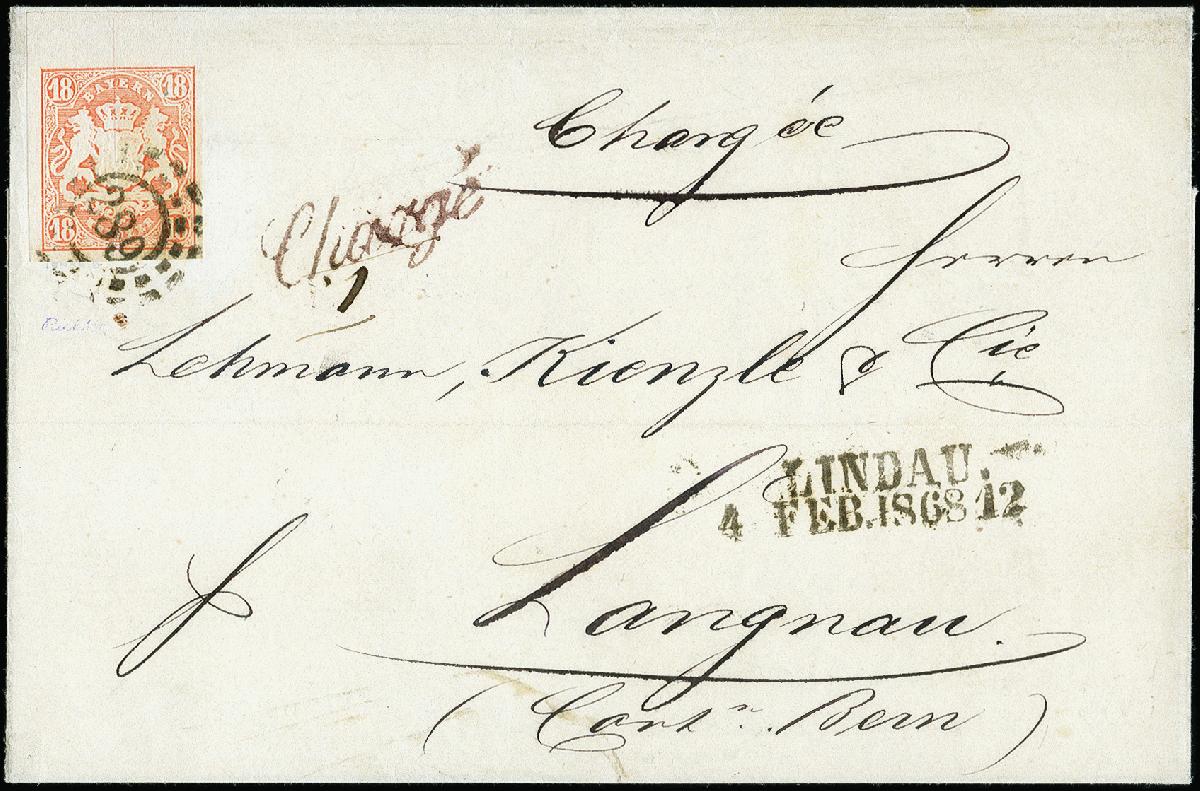 18 18
BAYERN
18
289
Chargée
Chargé
1
Herren
Lehmann, Kienzle & Cie
LINDAU.
4 FEB. 1868 12
p Langnau.
(Cantn. Bern)